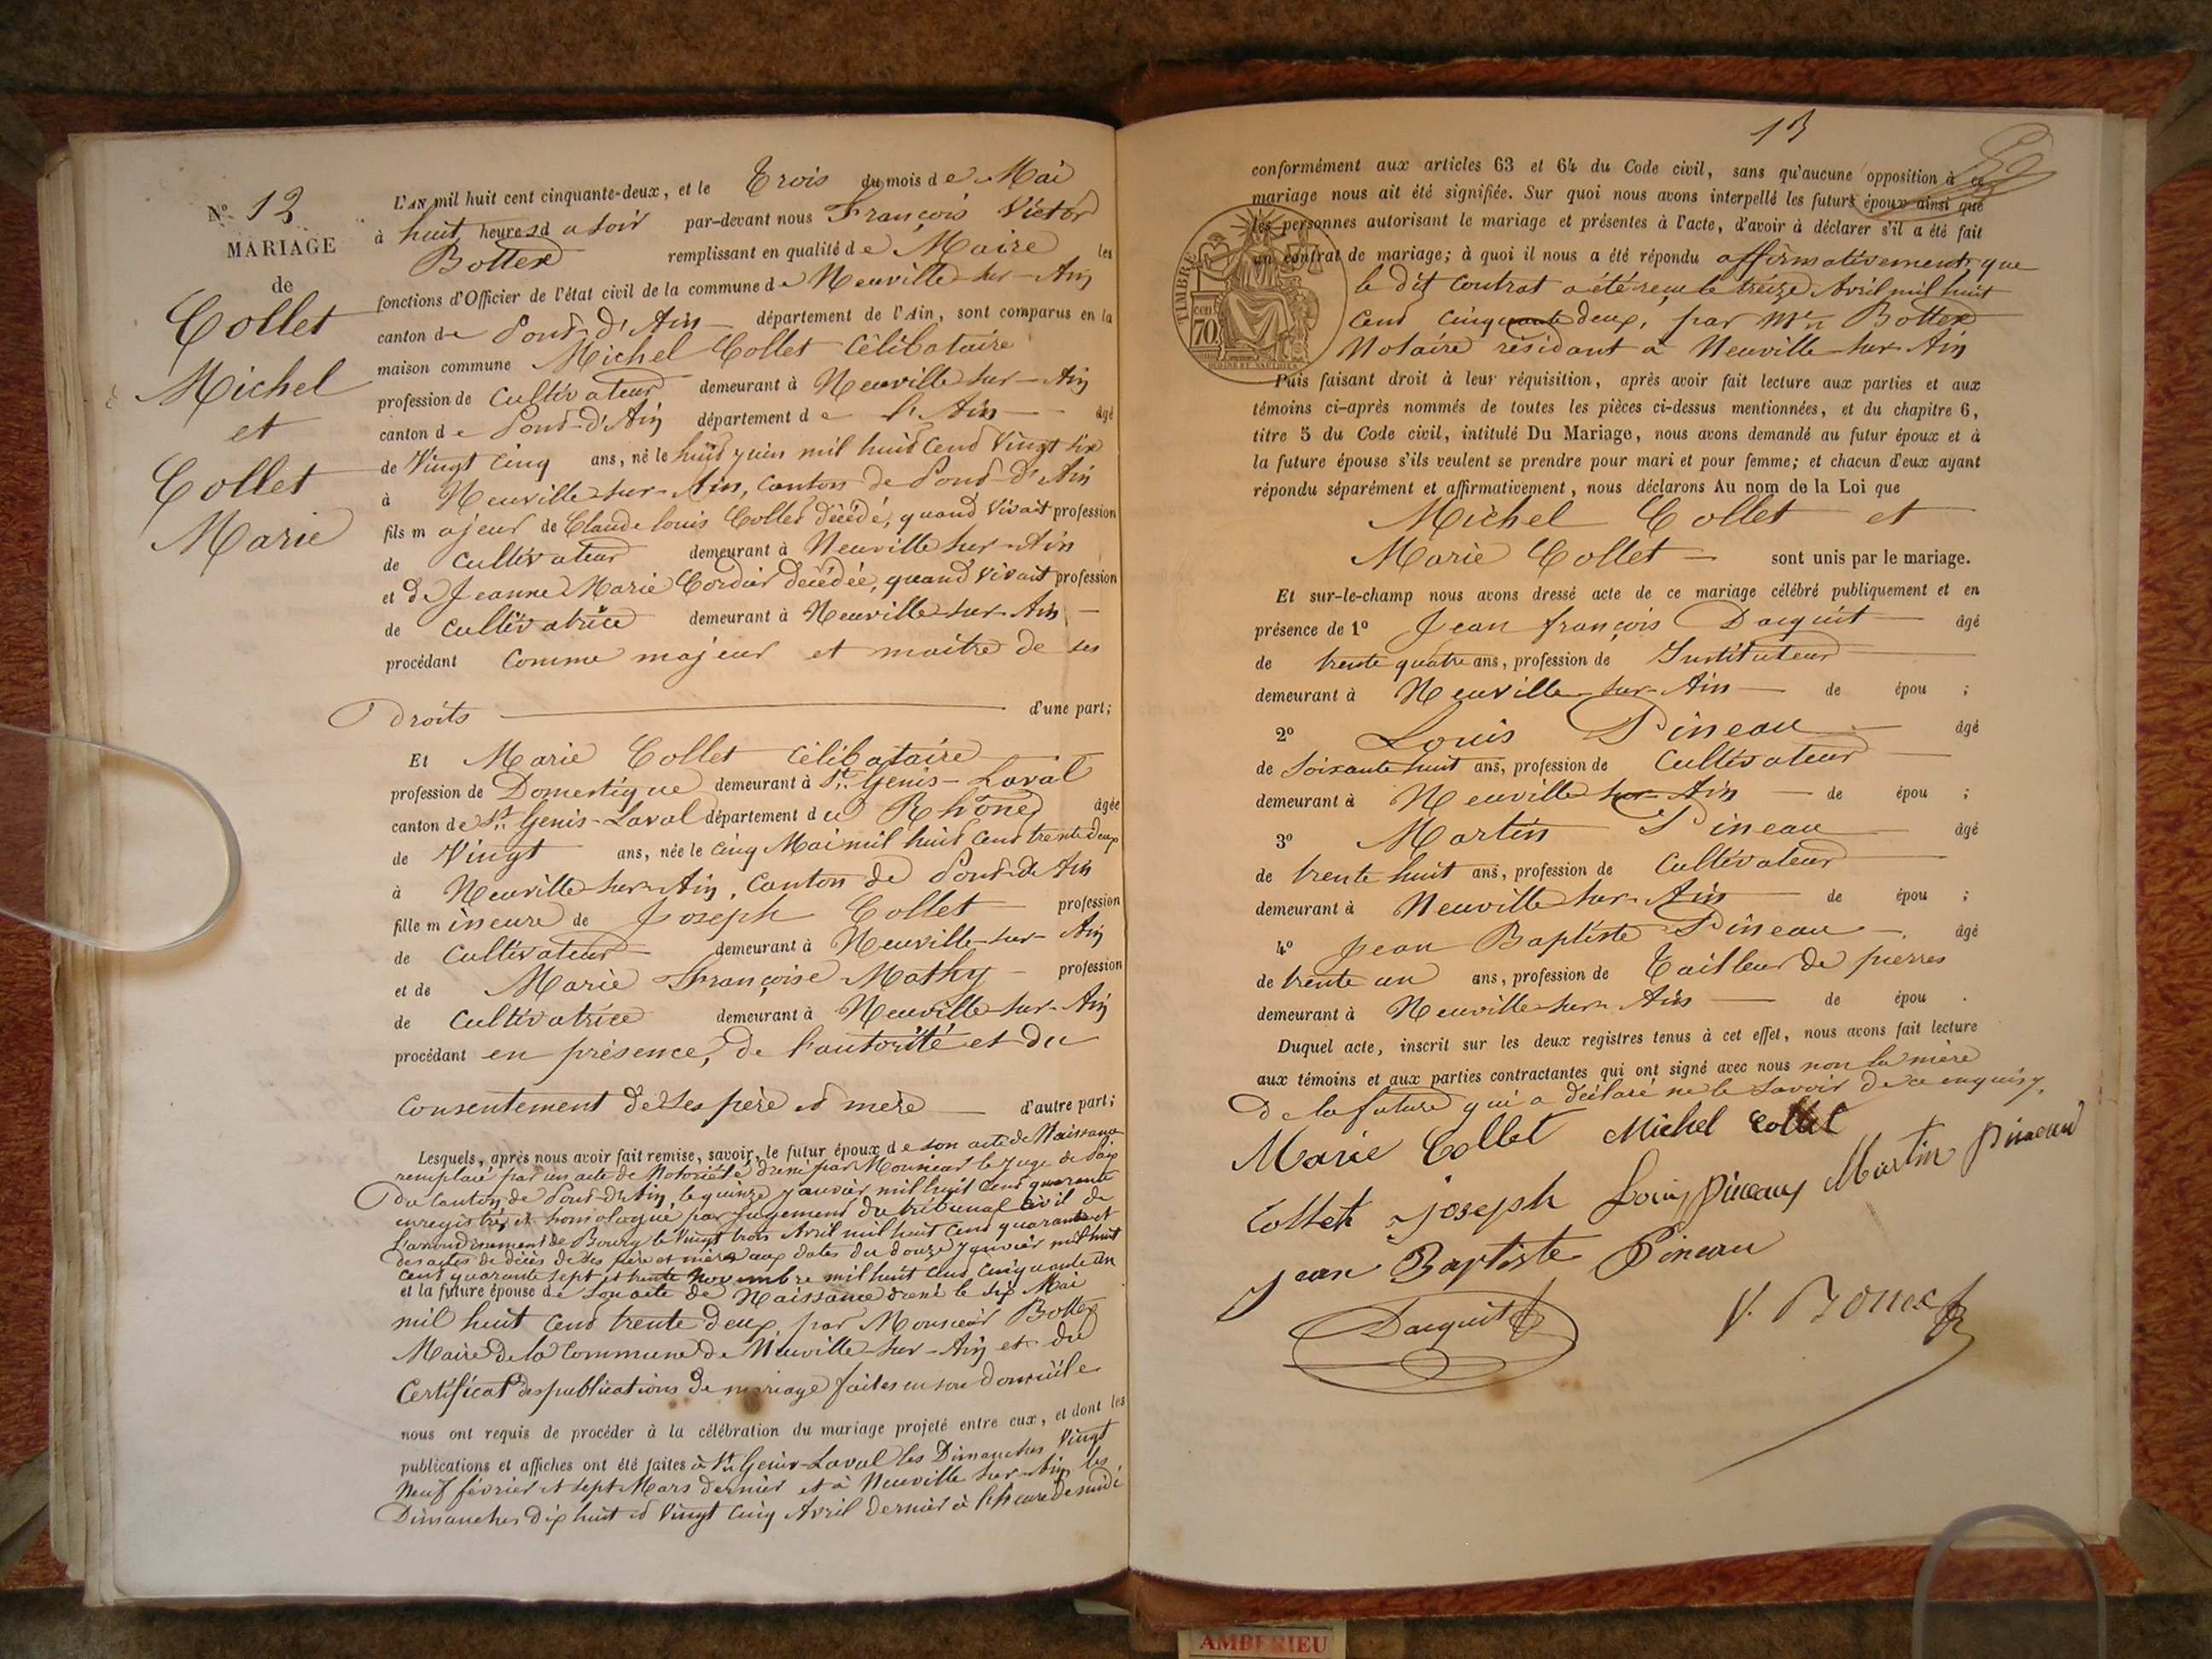 N.º 12
MARIAGE
de
Collet
Michel
et
Collet
Marie
L'AN mil huit cent cinquante-deux, et le Trois du mois de Mai
à huit heures du soir par-devant nous François Victor
Bottex remplissant en qualité de Maire les
fonctions d'Officier de l'état civil de la commune de Neuville sur-Ain
canton de Pont-d'Ain département de l'Ain, sont comparus en la
maison commune Michel Collet Célibataire
profession de Cultivateur demeurant à Neuville sur-Ain
canton de Pont-d'Ain département de l'Ain âgé
de Vingt Cinq ans, né le huit juin mil huit Cent Vingt six
à Neuville-sur-Ain, Canton de Pont-d'Ain
fils majeur de Claude Louis Collet décédé, quand Vivait profession
de Cultivateur demeurant à Neuville sur-Ain
et de Jeanne Marie Cordier décédée, quand Vivait profession
de Cultivatrice demeurant à Neuville-sur-Ain
procédant Comme majeur et maître de ses
droits d'une part;
Et Marie Collet Célibataire
profession de Domestique demeurant à St. Genis-Laval
canton de St. Genis-Laval département du Rhône âgée
de Vingt ans, née le Cinq Mai mil huit Cent trente deux
à Neuville sur-Ain, Canton de Pont-de Ain
fille mineure de Joseph Collet profession
de Cultivateur demeurant à Neuville-sur-Ain
et de Marie Françoise Mathy profession
de Cultivatrice demeurant à Neuville-sur-Ain
procédant en présence, de l'autorité et du
Consentement de ses père et mère d'autre part;
Lesquels, après nous avoir fait remise, savoir, le futur époux de son acte de Naissance
remplacé par un acte de Notoriété dressé par Monsieur le Juge de Paix
du Canton de Pont-d'Ain, le quinze janvier mil huit Cent quarante
enregistré, et homologué par jugement du tribunal Civil de
l'arrondissement de Bourg le Vingt trois Avril mil huit Cent quarante et
des actes de décès de ses père et mère aux dates du douze janvier mil huit
Cent quarante sept et trente Novembre mil huit Cent Cinquante un
et la future épouse de son acte de Naissance dressé le six Mai
mil huit Cent trente deux par Monsieur Bottex
Maire de la Commune de Neuville-sur-Ain et du
Certificat des publications de mariage faites en son domicile
nous ont requis de procéder à la célébration du mariage projeté entre eux, et dont les
publications et affiches ont été faites à St. Genis-Laval les Dimanches Vingt
Neuf février et sept Mars dernier et à Neuville sur-Ain les
Dimanches dix huit et Vingt Cinq Avril dernier à l'heure de midi
13
conformément aux articles 63 et 64 du Code civil, sans qu'aucune opposition à ce
mariage nous ait été signifiée. Sur quoi nous avons interpellé les futurs époux ainsi que
les personnes autorisant le mariage et présentes à l'acte, d'avoir à déclarer s'il a été fait
un contrat de mariage; à quoi il nous a été répondu affirmativement, que
le dit Contrat a été reçu le treize Avril mil huit
Cent Cinquante deux, par Me Bottex
Notaire résidant à Neuville-sur-Ain
TIMBRE
70 cent
Puis faisant droit à leur réquisition, après avoir fait lecture aux parties et aux
témoins ci-après nommés de toutes les pièces ci-dessus mentionnées, et du chapitre 6,
titre 5 du Code civil, intitulé Du Mariage, nous avons demandé au futur époux et à
la future épouse s'ils veulent se prendre pour mari et pour femme; et chacun d'eux ayant
répondu séparément et affirmativement, nous déclarons Au nom de la Loi que
Michel Collet et
Marie Collet sont unis par le mariage.
Et sur-le-champ nous avons dressé acte de ce mariage célébré publiquement et en
présence de 1º Jean françois Dacquit âgé
de trente quatre ans, profession de Instituteur
demeurant à Neuville-sur-Ain de épou ;
2º Louis Pineau âgé
de Soixante huit ans, profession de Cultivateur
demeurant à Neuville sur-Ain de épou ;
3º Martin Pineau âgé
de trente huit ans, profession de Cultivateur
demeurant à Neuville sur-Ain de épou ;
4º Jean Baptiste Pineau âgé
de trente un ans, profession de Tailleur de pierres
demeurant à Neuville-sur-Ain de épou .
Duquel acte, inscrit sur les deux registres tenus à cet effet, nous avons fait lecture
aux témoins et aux parties contractantes qui ont signé avec nous non la mère
de la future qui a déclaré ne le savoir de ce enquise.
Marie Collet Michel Collet
Collet Joseph Louis Pineau Martin Pineau
Jean Baptiste Pineau
Dacquit V. Bottex
AMBERIEU